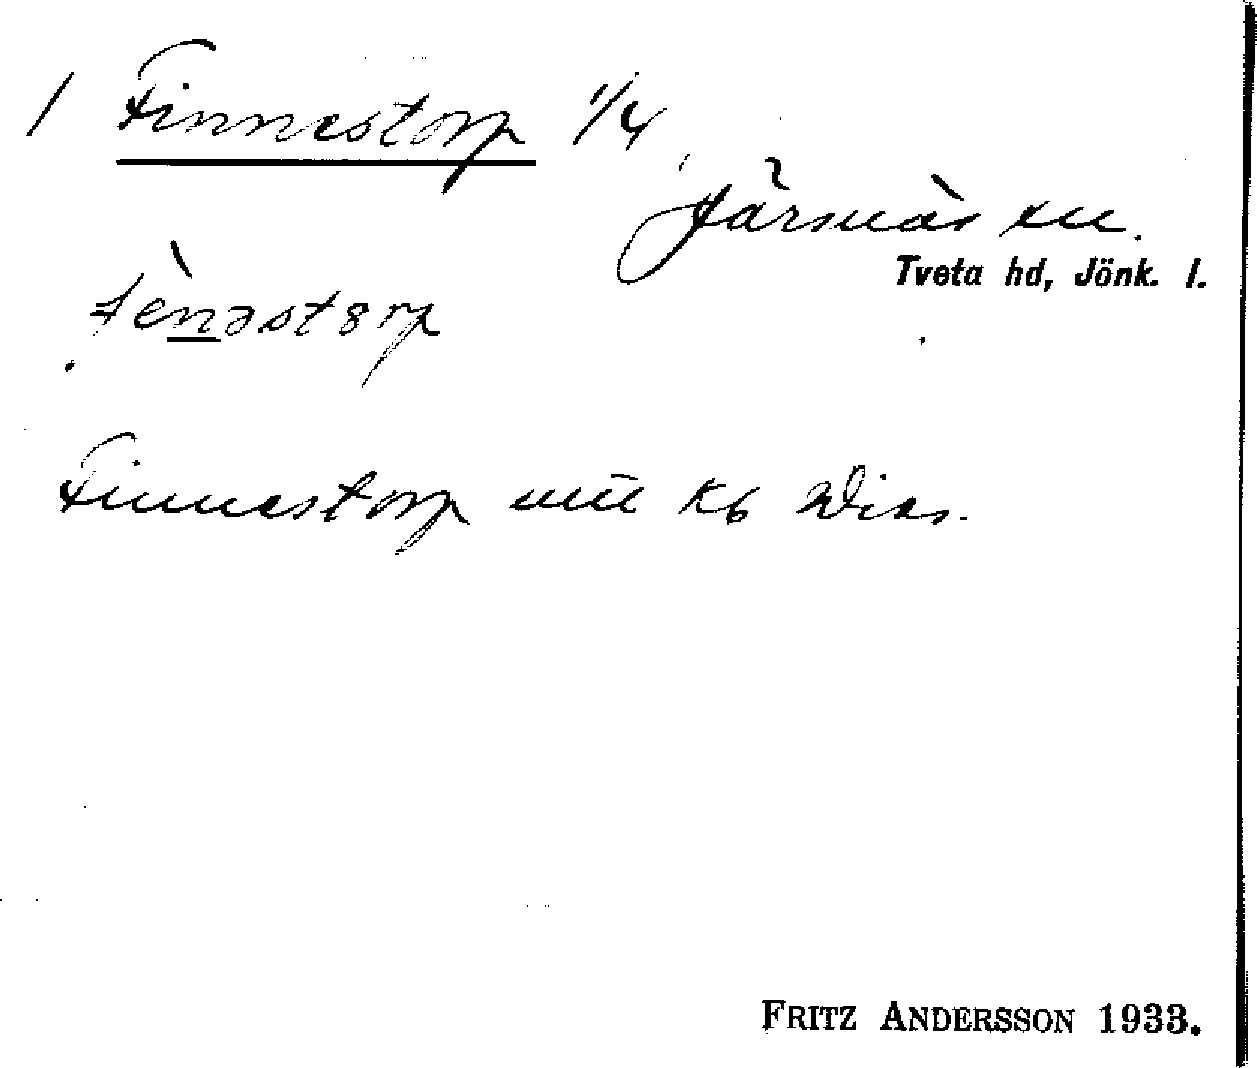 1 Finnestorp 1/4
Järsnäs sn.
Tveta hd, Jönk. l.
fènəstorp
Finnestorp
FRITZ ANDERSSON 1933.